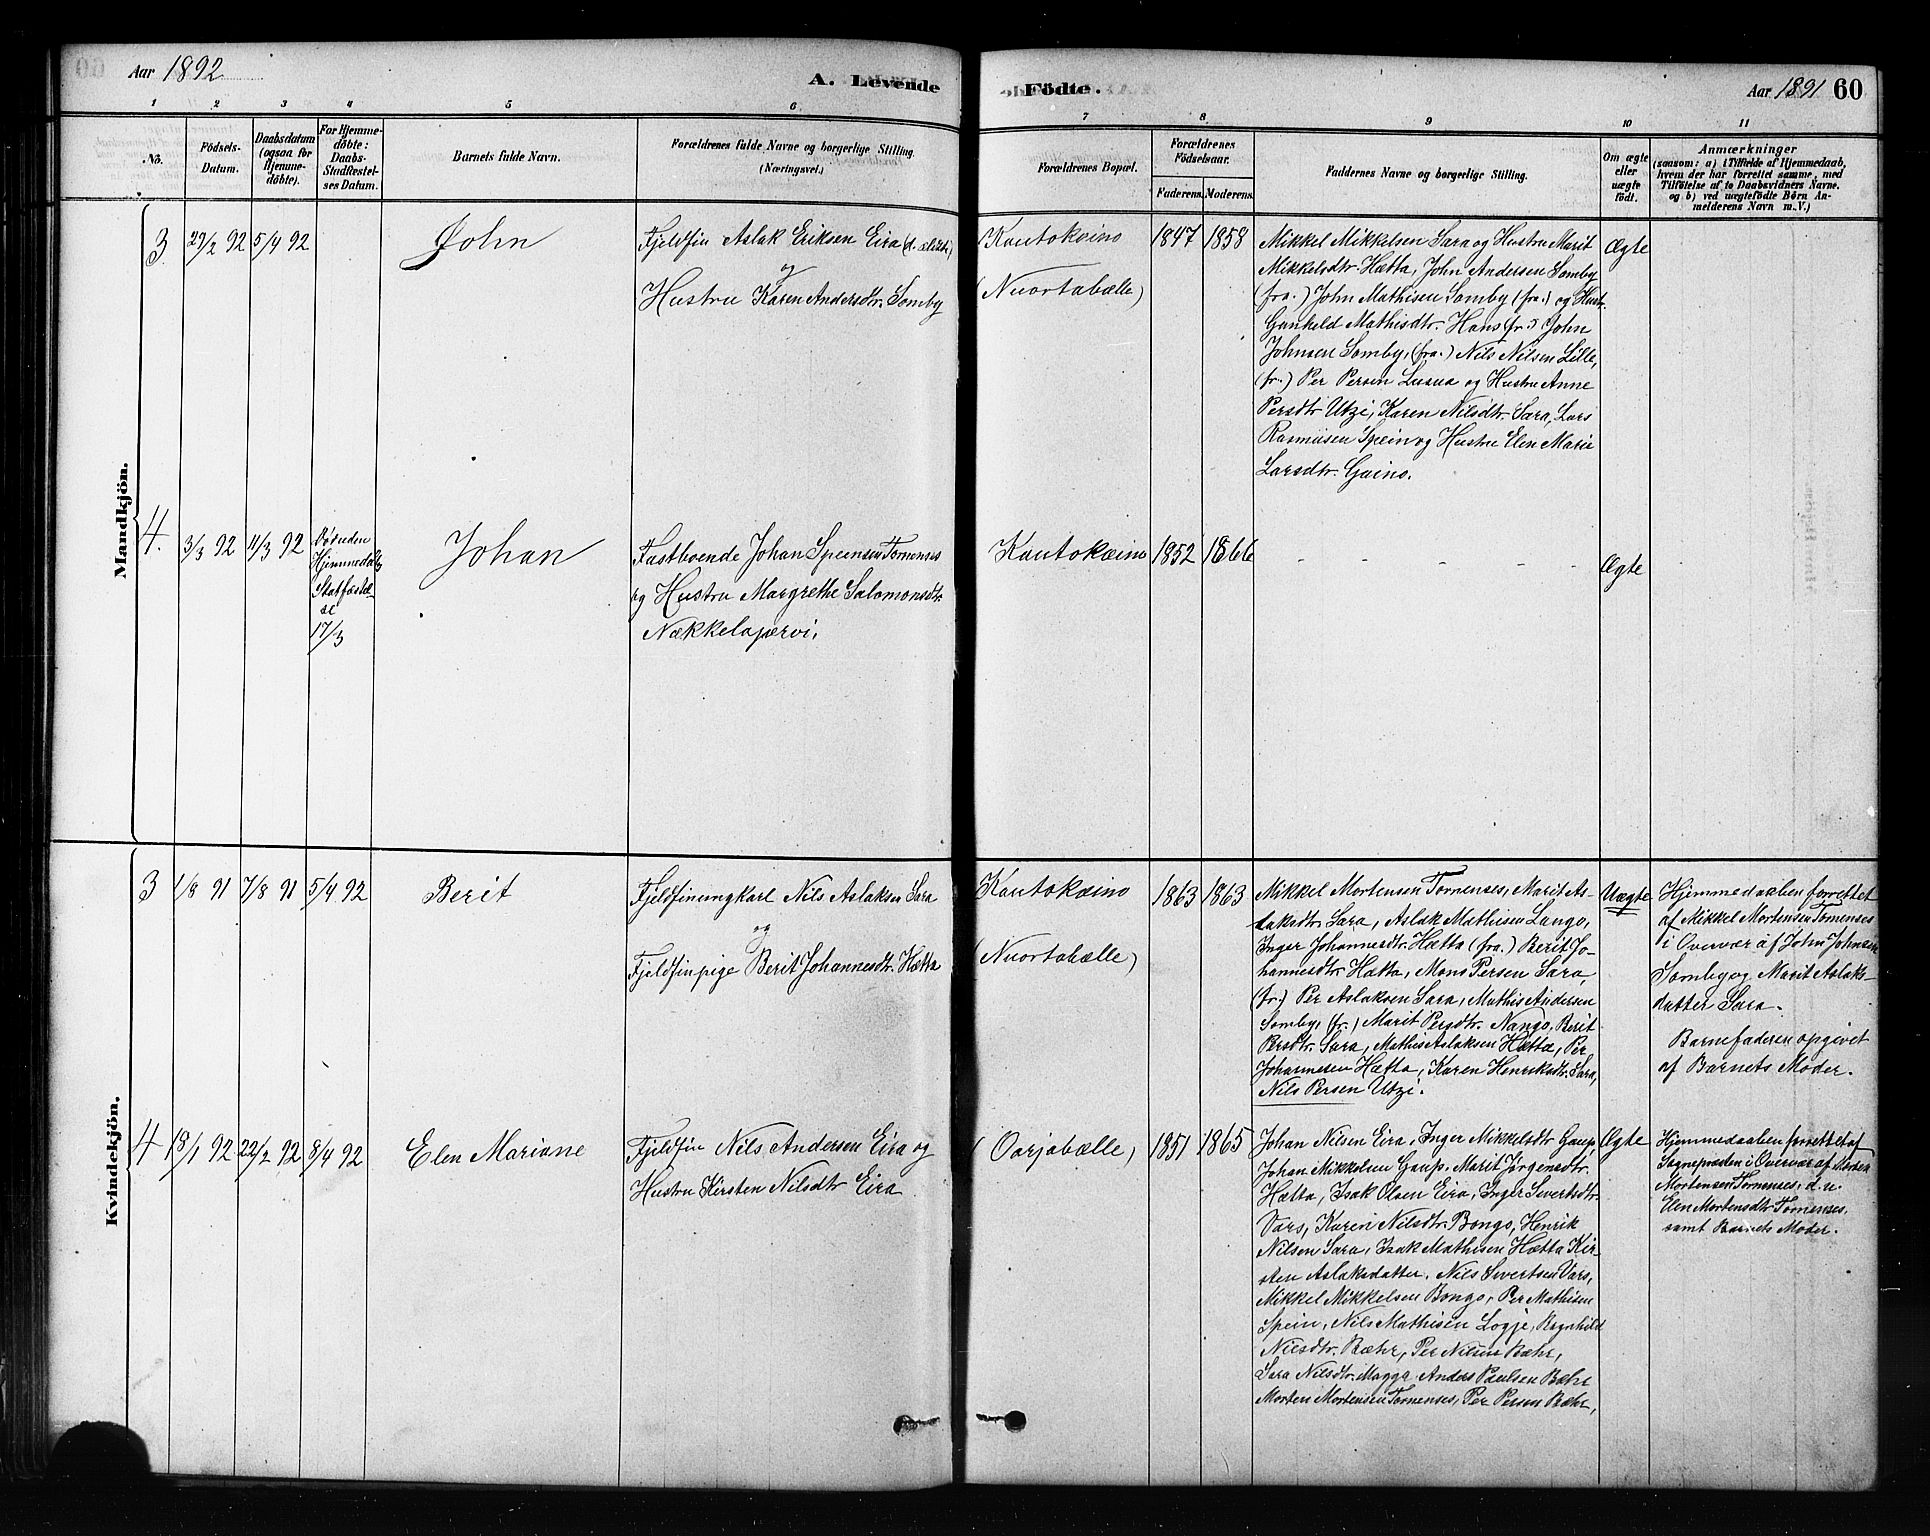 Aar 1892
A. Levende
Födte.
Aar 1891 60
1 2 3 4 5 6 7 8 9 10 11
No.
Födsels-
Datum.
Daabsdatum
(ogsaa for
Hjemme-
döbte).
For Hjemme-
döbte:
Daabs-
Stadfæstel-
ses Datum.
Barnets fulde Navn.
Forældrenes fulde Navne og borgerlige Stilling.
(Næringsvei.)
Forældrenes Bopæl.
Forældrenes
Födselsaar.
Faderens. Moderens.
Faddernes Navne og borgerlige Stilling.
Om ægte
eller
uægte
födt.
Anmærkninger
(saasom: a) i Tilfælde af Hjemmedaab,
hvem der har forrettet samme, med
Tilföielse af to Daabsvidners Navne.
og b) ved uægtefödte Börn An-
melderens Navn m. V.)
Mandkjön.
3 29/2 92 5/4 92
John
Fjeldfin Aslak Eriksen Eira
og
Hustru Karen Andersdtr. Somby
Kautokeino
(Nuortabælle)
1847 1858
Mikkel Mikkelsen Sara og Hustru Marit
Mikkelsdtr. Hætta, John Andersen Somby
(fra.) John Mathisen Somby (fra.) og Hustr.
Gunhild Mathisdtr. Hans (fr.) John
Johnsen Somby, (fra.) Nils Nilsen Lille,
(fr.) Per Persen Lusua og Hustru Anne
Persdtr Utzi, Karen Nilsdtr. Sara, Lars
Rasmusen Spein og Hustru Elen Marie
Larsdtr. Gaino.
Ægte
4. 3/3 92 11/3 92
Hjemmedaab
Statfæstel-
se
17/3
Johan
Fastboende Johan Speinsen Tornenses
og Hustru Margrethe Salomonsdtr.
Nækkelajærvi.
Kautokeino
1852 1866
- - - - -
Ægte
Kvindekjön.
3 1/8 91 7/8 91 5/4 92
Berit
Fjeldfinungkarl Nils Aslaksen Sara
og
Fjeldfinpige Berit Johannesdtr. Hætta
Kautokeino
(Nuortabælle)
1863 1863
Mikkel Mortensen Tornenses, Marit As-
laksdtr. Sara, Aslak Mathisen Lango,
Inger Johannesdtr. Hætta (fra.) Berit Jo-
hannesdtr. Hætta, Mons Persen Sara,
(fr.) Per Aslaksen Sara, Mathis Andersen
Somby, (fr.) Marit Persdtr. Nango, Berit
Persdtr. Sara, Mathis Aslaksen Hætta, Per
Johannesen Hætta, Karen Henriksdtr. Sara,
Nils Persen Utzi.
Uægte
Hjemmedaaben forrettet
af Mikkel Mortensen Tornenses
i Overvær af John Johnsen
Somby og Marit Aslaks-
datter Sara.
Barnefaderen opgivet
af Barnets Moder.
4 18/1 92 22/2 92 8/4 92
Elen Mariane
Fjeldfin Nils Andersen Eira og
Hustru Kirsten Nilsdtr Eira
(Oarjabælle)
1851 1865
Johan Nilsen Eira, Inger Mikkelsdtr Gaup,
Johan Mikkelsen Gaup, Marit Jørgensdtr.
Hætta, Isak Olsen Eira, Inger Sivertsdtr.
Vars, Karen Nilsdtr. Bongo, Henrik
Nilsen Sara, Isak Mathisen Hætta Kir-
sten Aslaksdatter, Nils Sivertsen Vars,
Mikkel Mikkelsen Bongo, Per Mathisen
Spein, Nils Mathisen Logje, Ragnhild
Nilsdtr. Bæhr, Per Nilsen Bæhr,
Sara Nilsdtr. Magga, Anders Paulsen Bæhr
Morten Mortensen Tornenses, Per Persen Bæhr,
Ægte
Hjemmedaaben forrettet af
Sognepræsten i Overvær af Morten
Mortensen Tornenses, d. u.
Elen Mortensdtr. Tornenses,
samt Barnets Moder.